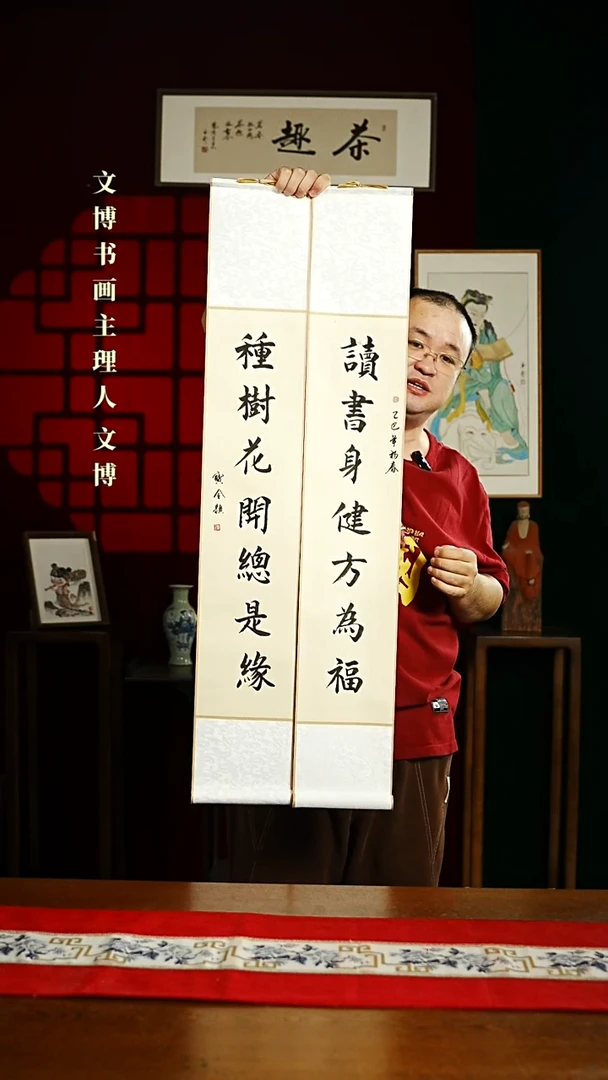 茶趣
文博书画主理人文博
讀書身健方為福
種樹花開總是緣
乙巳年初春